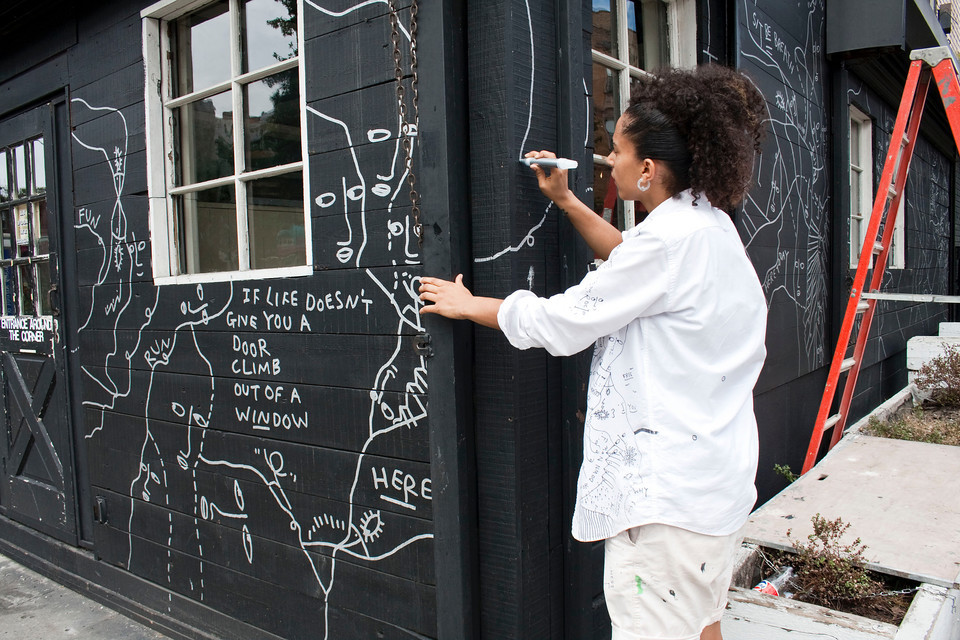 SIT BE
FUN
ENTRANCE AROUND
THE CORNER
IF LIFE DOESN'T
GIVE YOU A
DOOR
CLIMB
OUT OF A
WINDOW
RUN
HERE